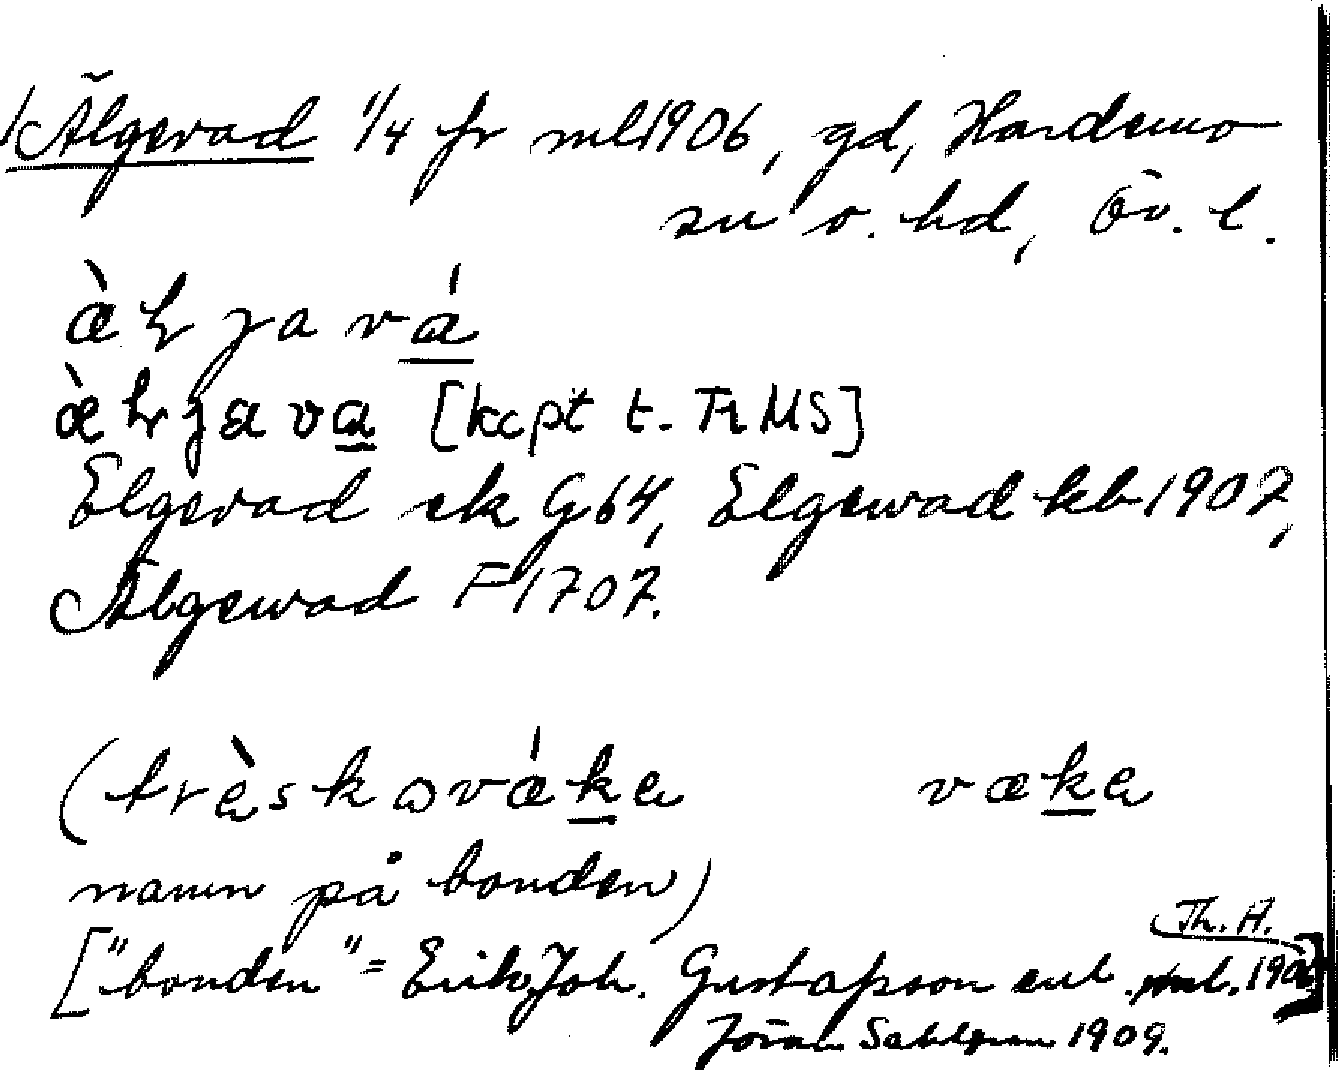 Älgevad 1/4 fr ml 1906, gd, Hardemo
sn o. hd, Ör. l.
[kcpt t. Tr MS]
Elgevad ek G 64, Elgewad kb 1907,
Älgewad F 1707.
(træskovæka væka
namn på bonden)
["bonden" = Erik Joh. Gustafsson enl. ml. 1906]
Th. A.
Jöran Sahlgren 1909.